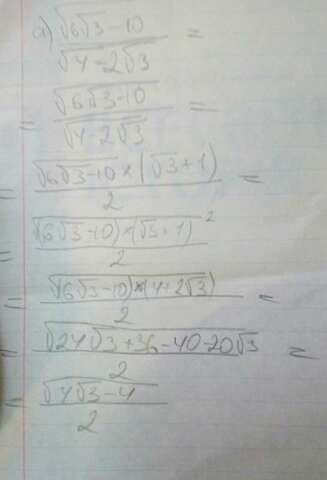 a) √(6√3-10) / √(4-2√3) =
= √(6√3-10) / √(4-2√3) =
= √(6√3-10) × (√3+1) / 2 =
= √((6√3-10) × (√3+1)²) / 2
= √((6√3-10) × (4+2√3)) / 2 =
= √(24√3+36-40-20√3) / 2 =
= √(4√3-4) / 2